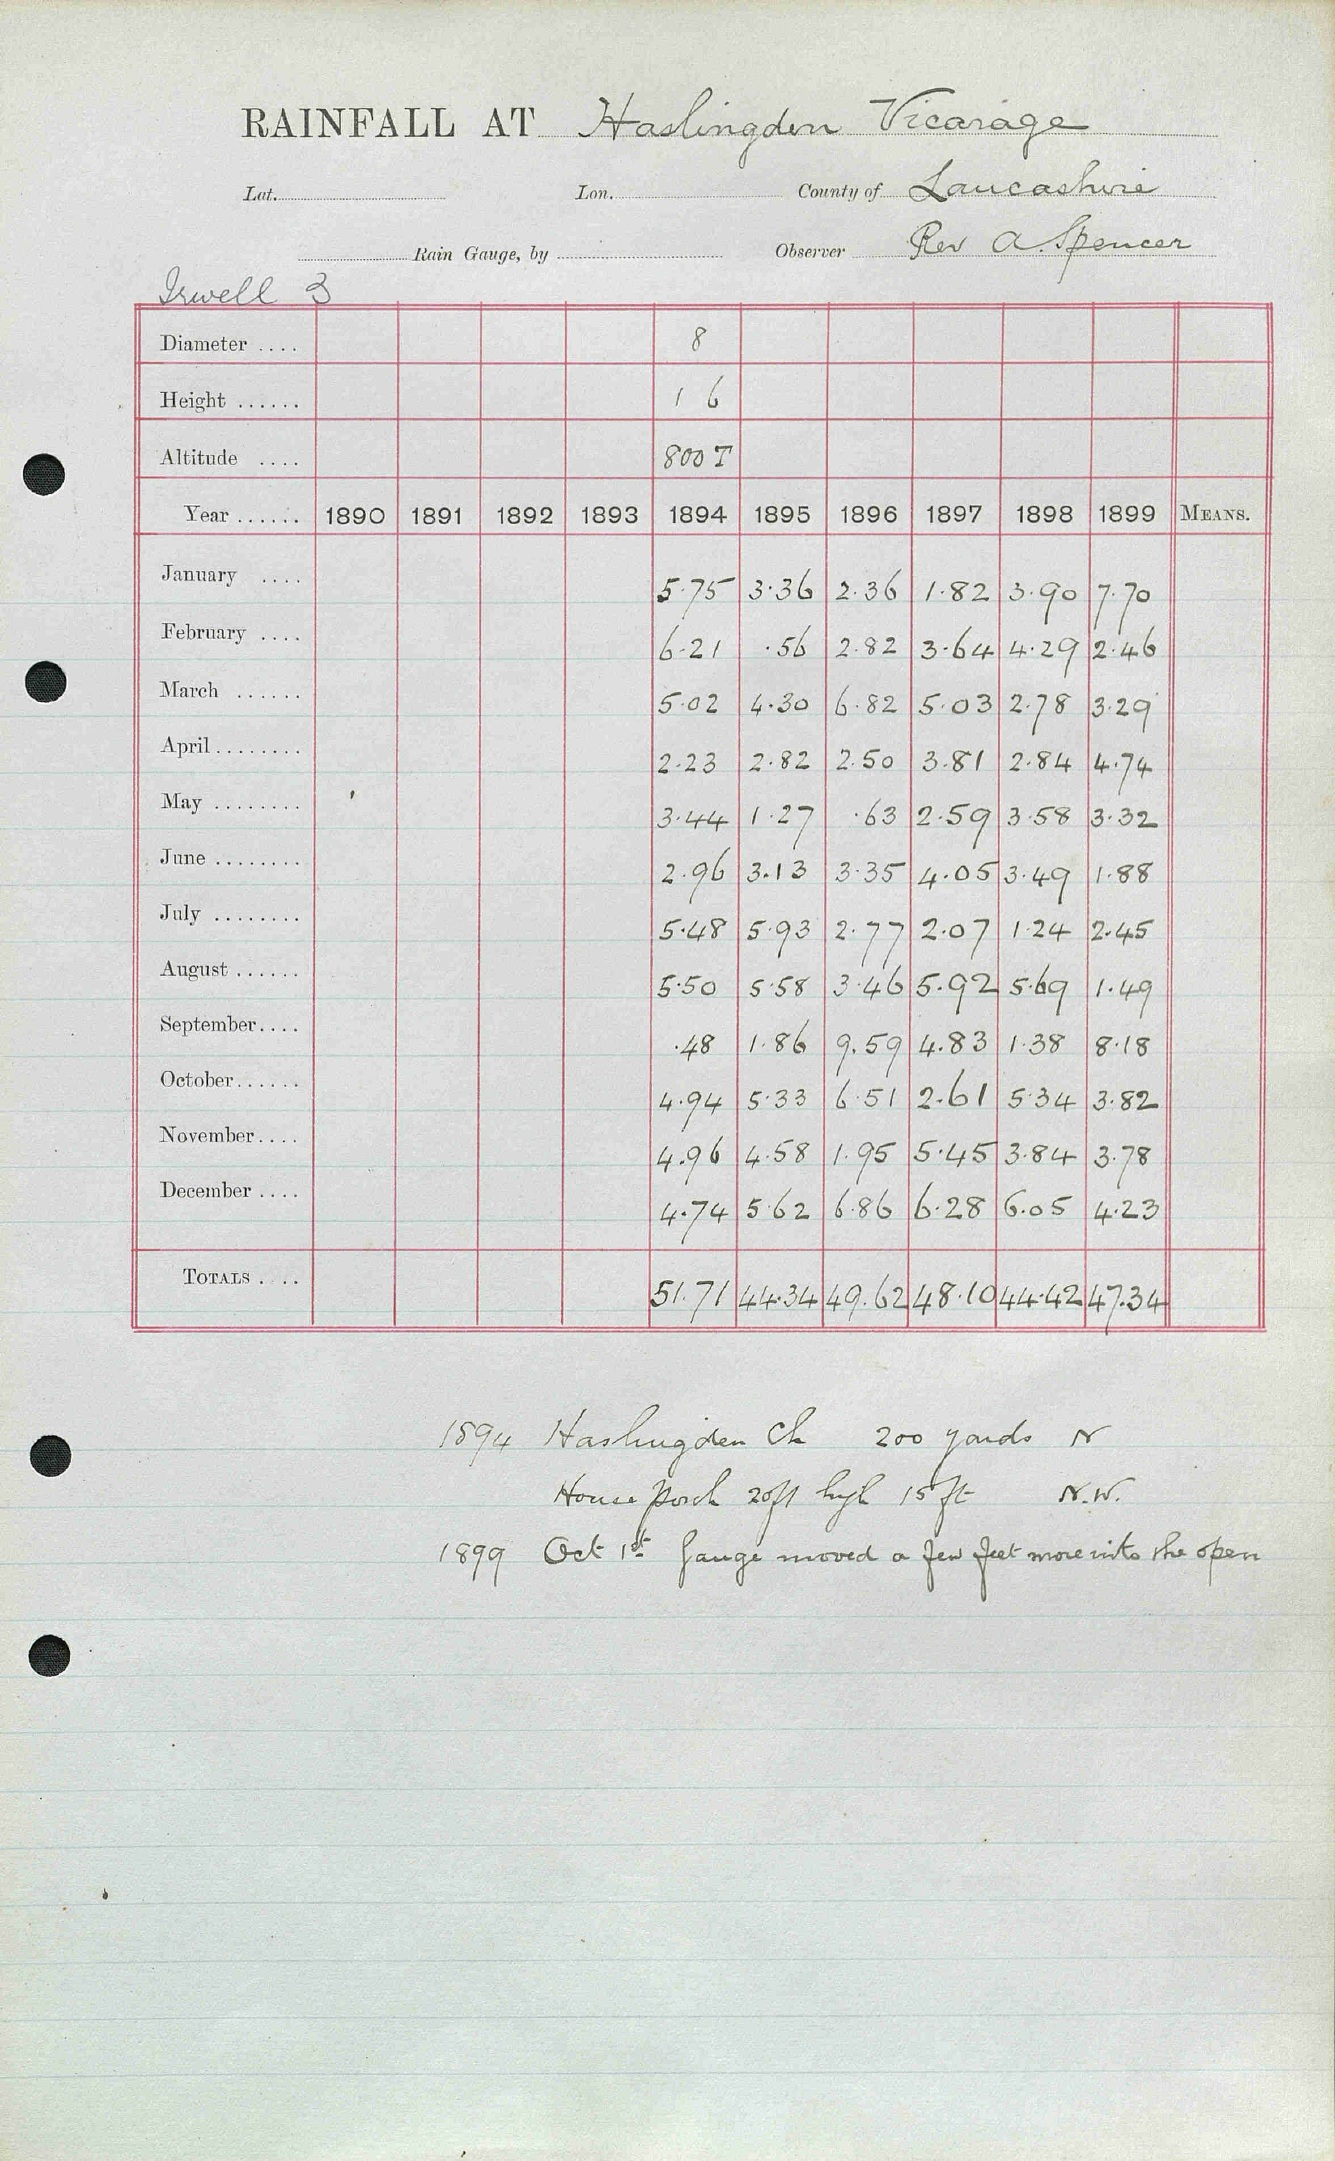 RAINFALL AT Haslingden Vicarage
Lat. Lon. County of Lancashire
Rain Gauge, by Observer Rev A. Spencer
Irwell 3
Diameter .... 8
Height ...... 1 6
Altitude .... 800 T
Year ...... 1890 1891 1892 1893 1894 1895 1896 1897 1898 1899 MEANS.
January .... 5.75 3.36 2.36 1.82 3.90 7.70
February .... 6.21 .56 2.82 3.64 4.29 2.46
March ...... 5.02 4.30 6.82 5.03 2.78 3.29
April ........ 2.23 2.82 2.50 3.81 2.84 4.74
May ........ 3.44 1.27 .63 2.59 3.58 3.32
June ........ 2.96 3.13 3.35 4.05 3.49 1.88
July ........ 5.48 5.93 2.77 2.07 1.24 2.45
August ...... 5.50 5.58 3.46 5.92 5.69 1.49
September .... .48 1.86 9.59 4.83 1.38 8.18
October ...... 4.94 5.33 6.51 2.61 5.34 3.82
November .... 4.96 4.58 1.95 5.45 3.84 3.78
December .... 4.74 5.62 6.86 6.28 6.05 4.23
TOTALS .... 51.71 44.34 49.62 48.10 44.42 47.34
1894 Haslingden Ch 200 yards N
House porch 20ft high 15ft N.W.
1899 Oct 1st Gauge moved a few feet more into the open